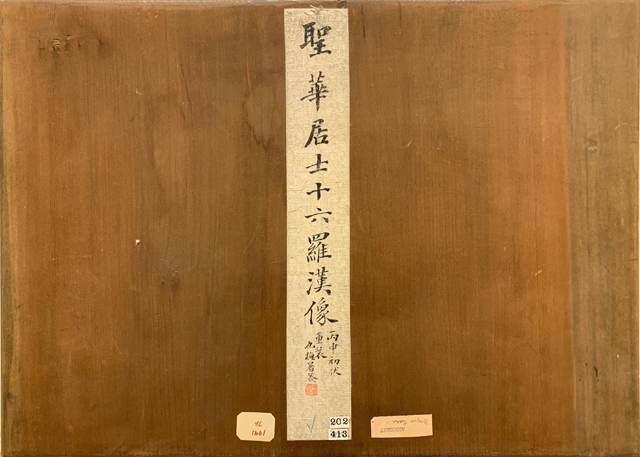 聖華居士十六羅漢像
丙申初伏
重裝
202
413
1991